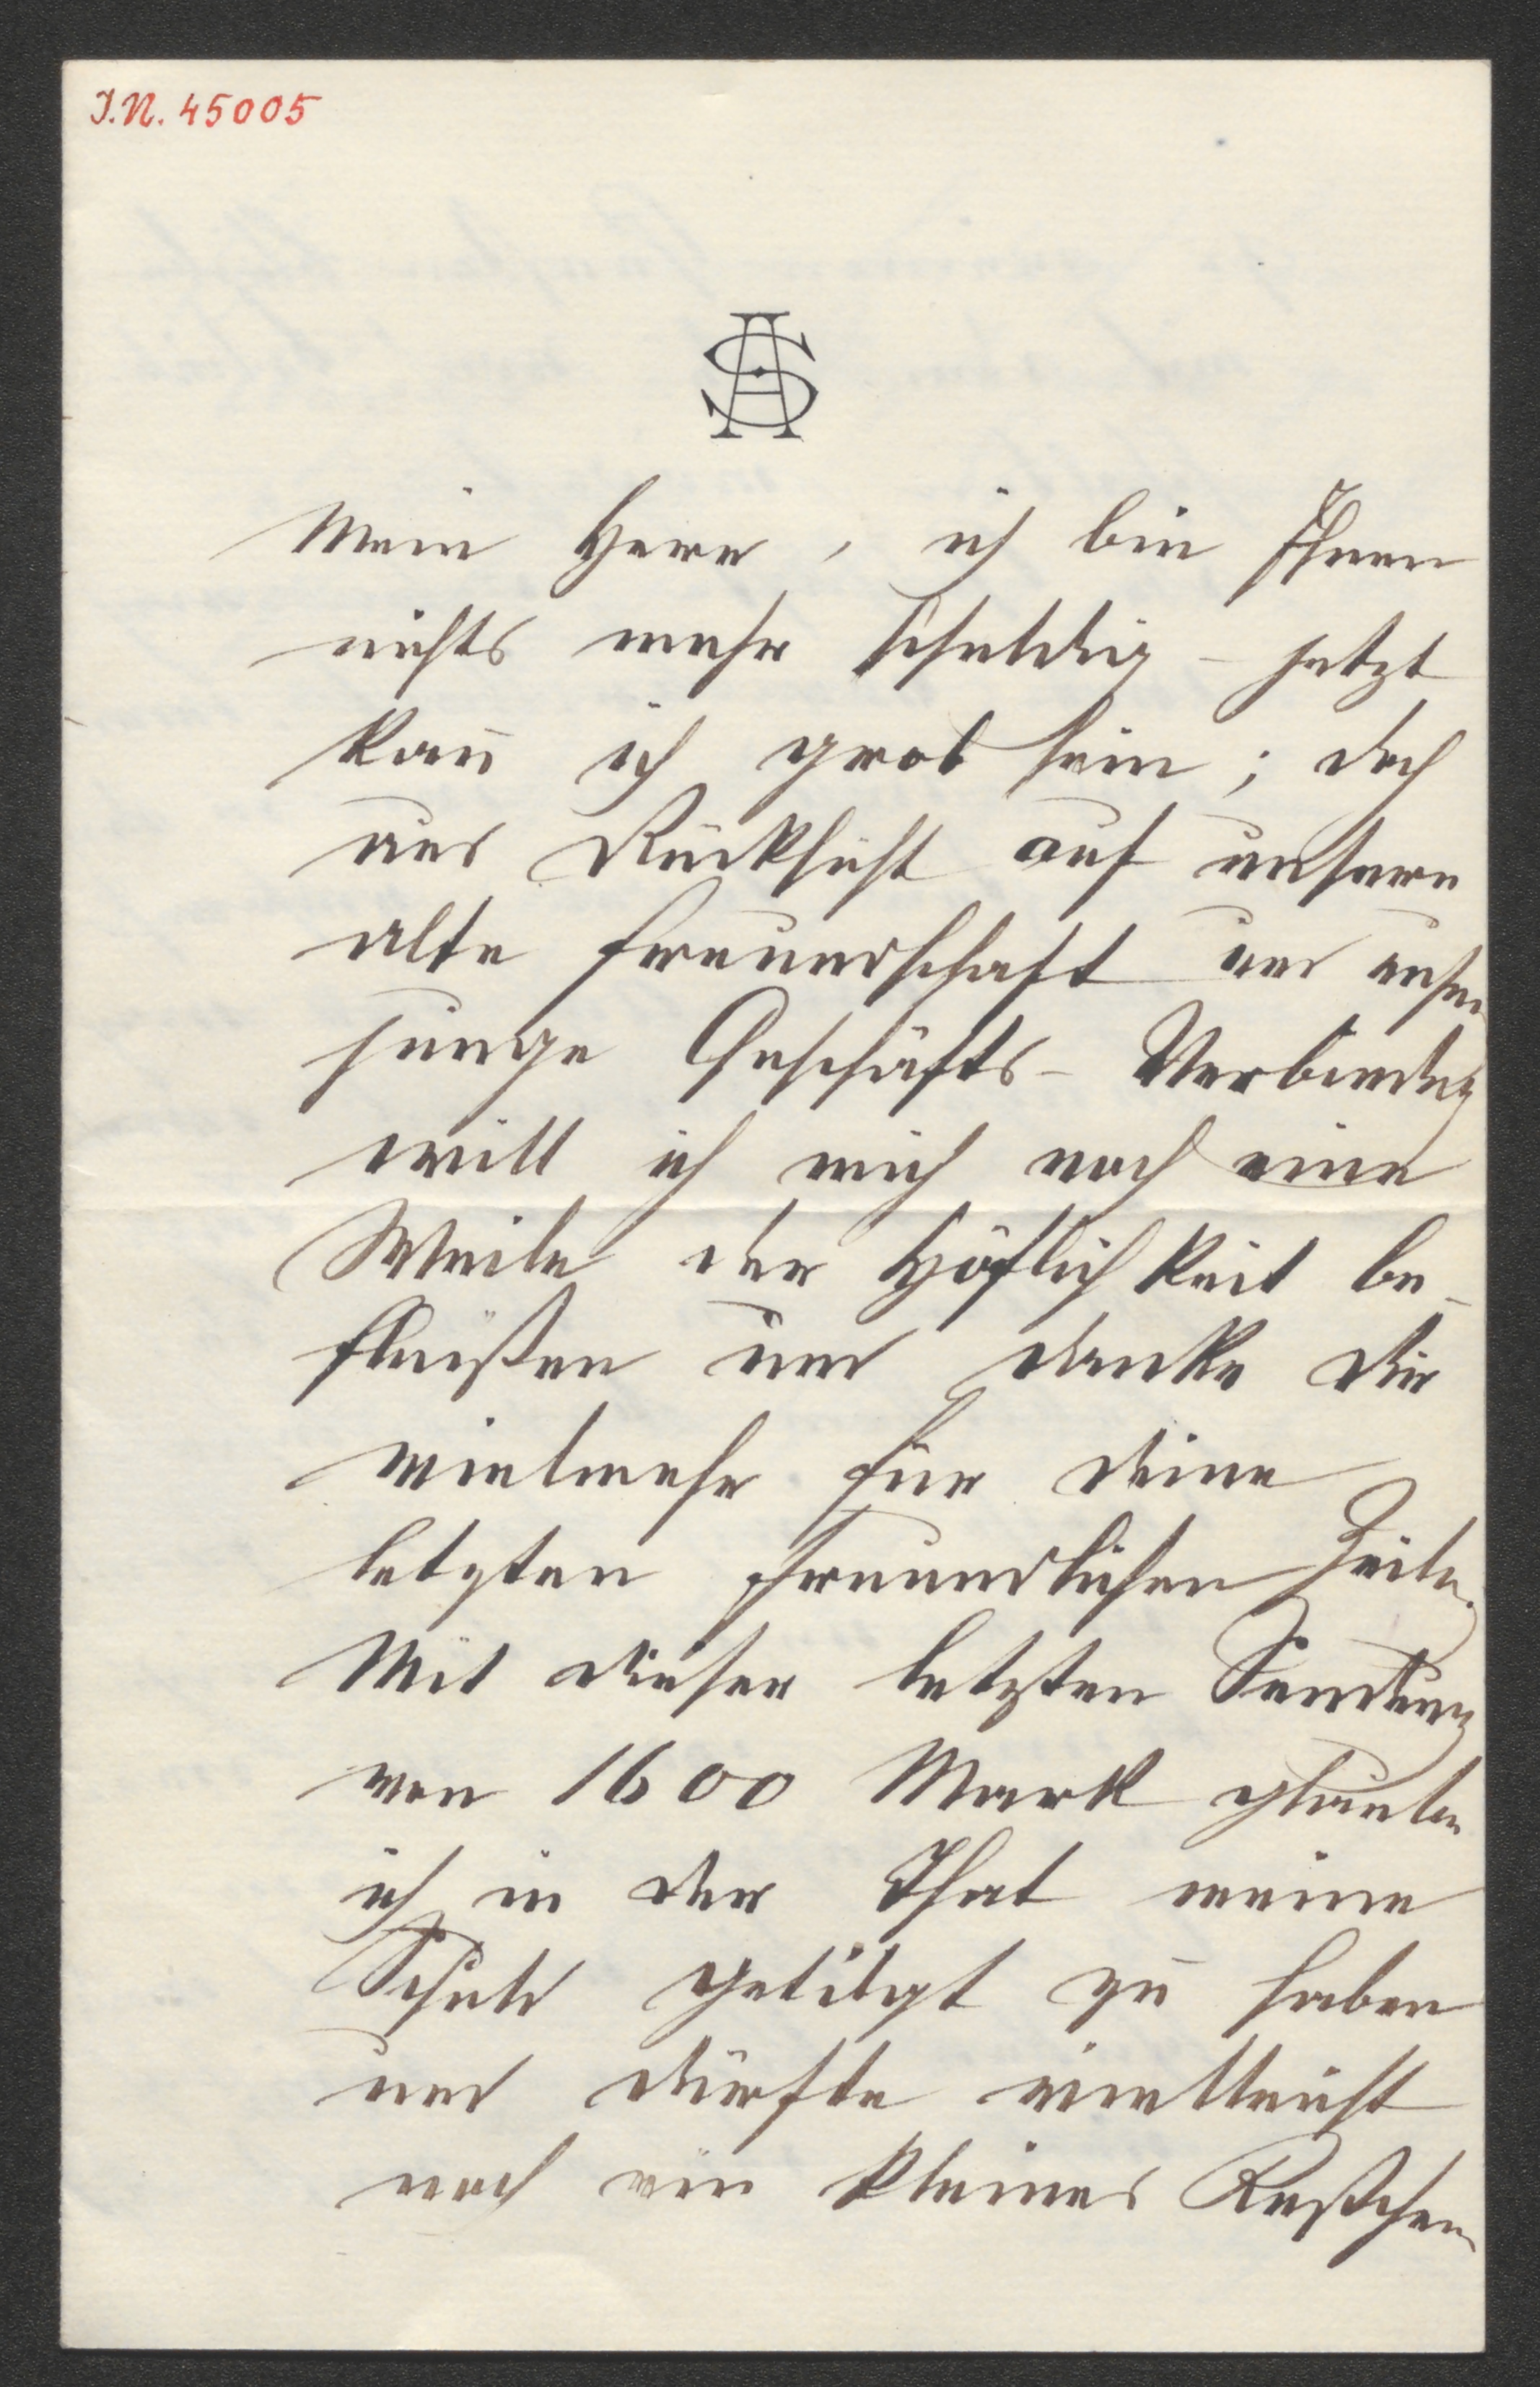 I.N. 45005
AS
Mein Herr, ich bin Ihnen
nichts mehr schuldig – jetzt
kan̄ ich grob sein; doch
aus Rücksicht auf unsere
alte Freundschaft und unsre
junge Geschäfts-Verbindung
will ich mich noch eine
Weile der Höflichkeit be-
fleißen und danke dir
vielmehr für deine
letzten freundlichen Zeilen.
Mit dieser letzten Sendung
von 1600 Mark glaube
ich in der That meine
Schuld getilgt zu haben
und dürfte vielleicht
noch ein kleines Restchen